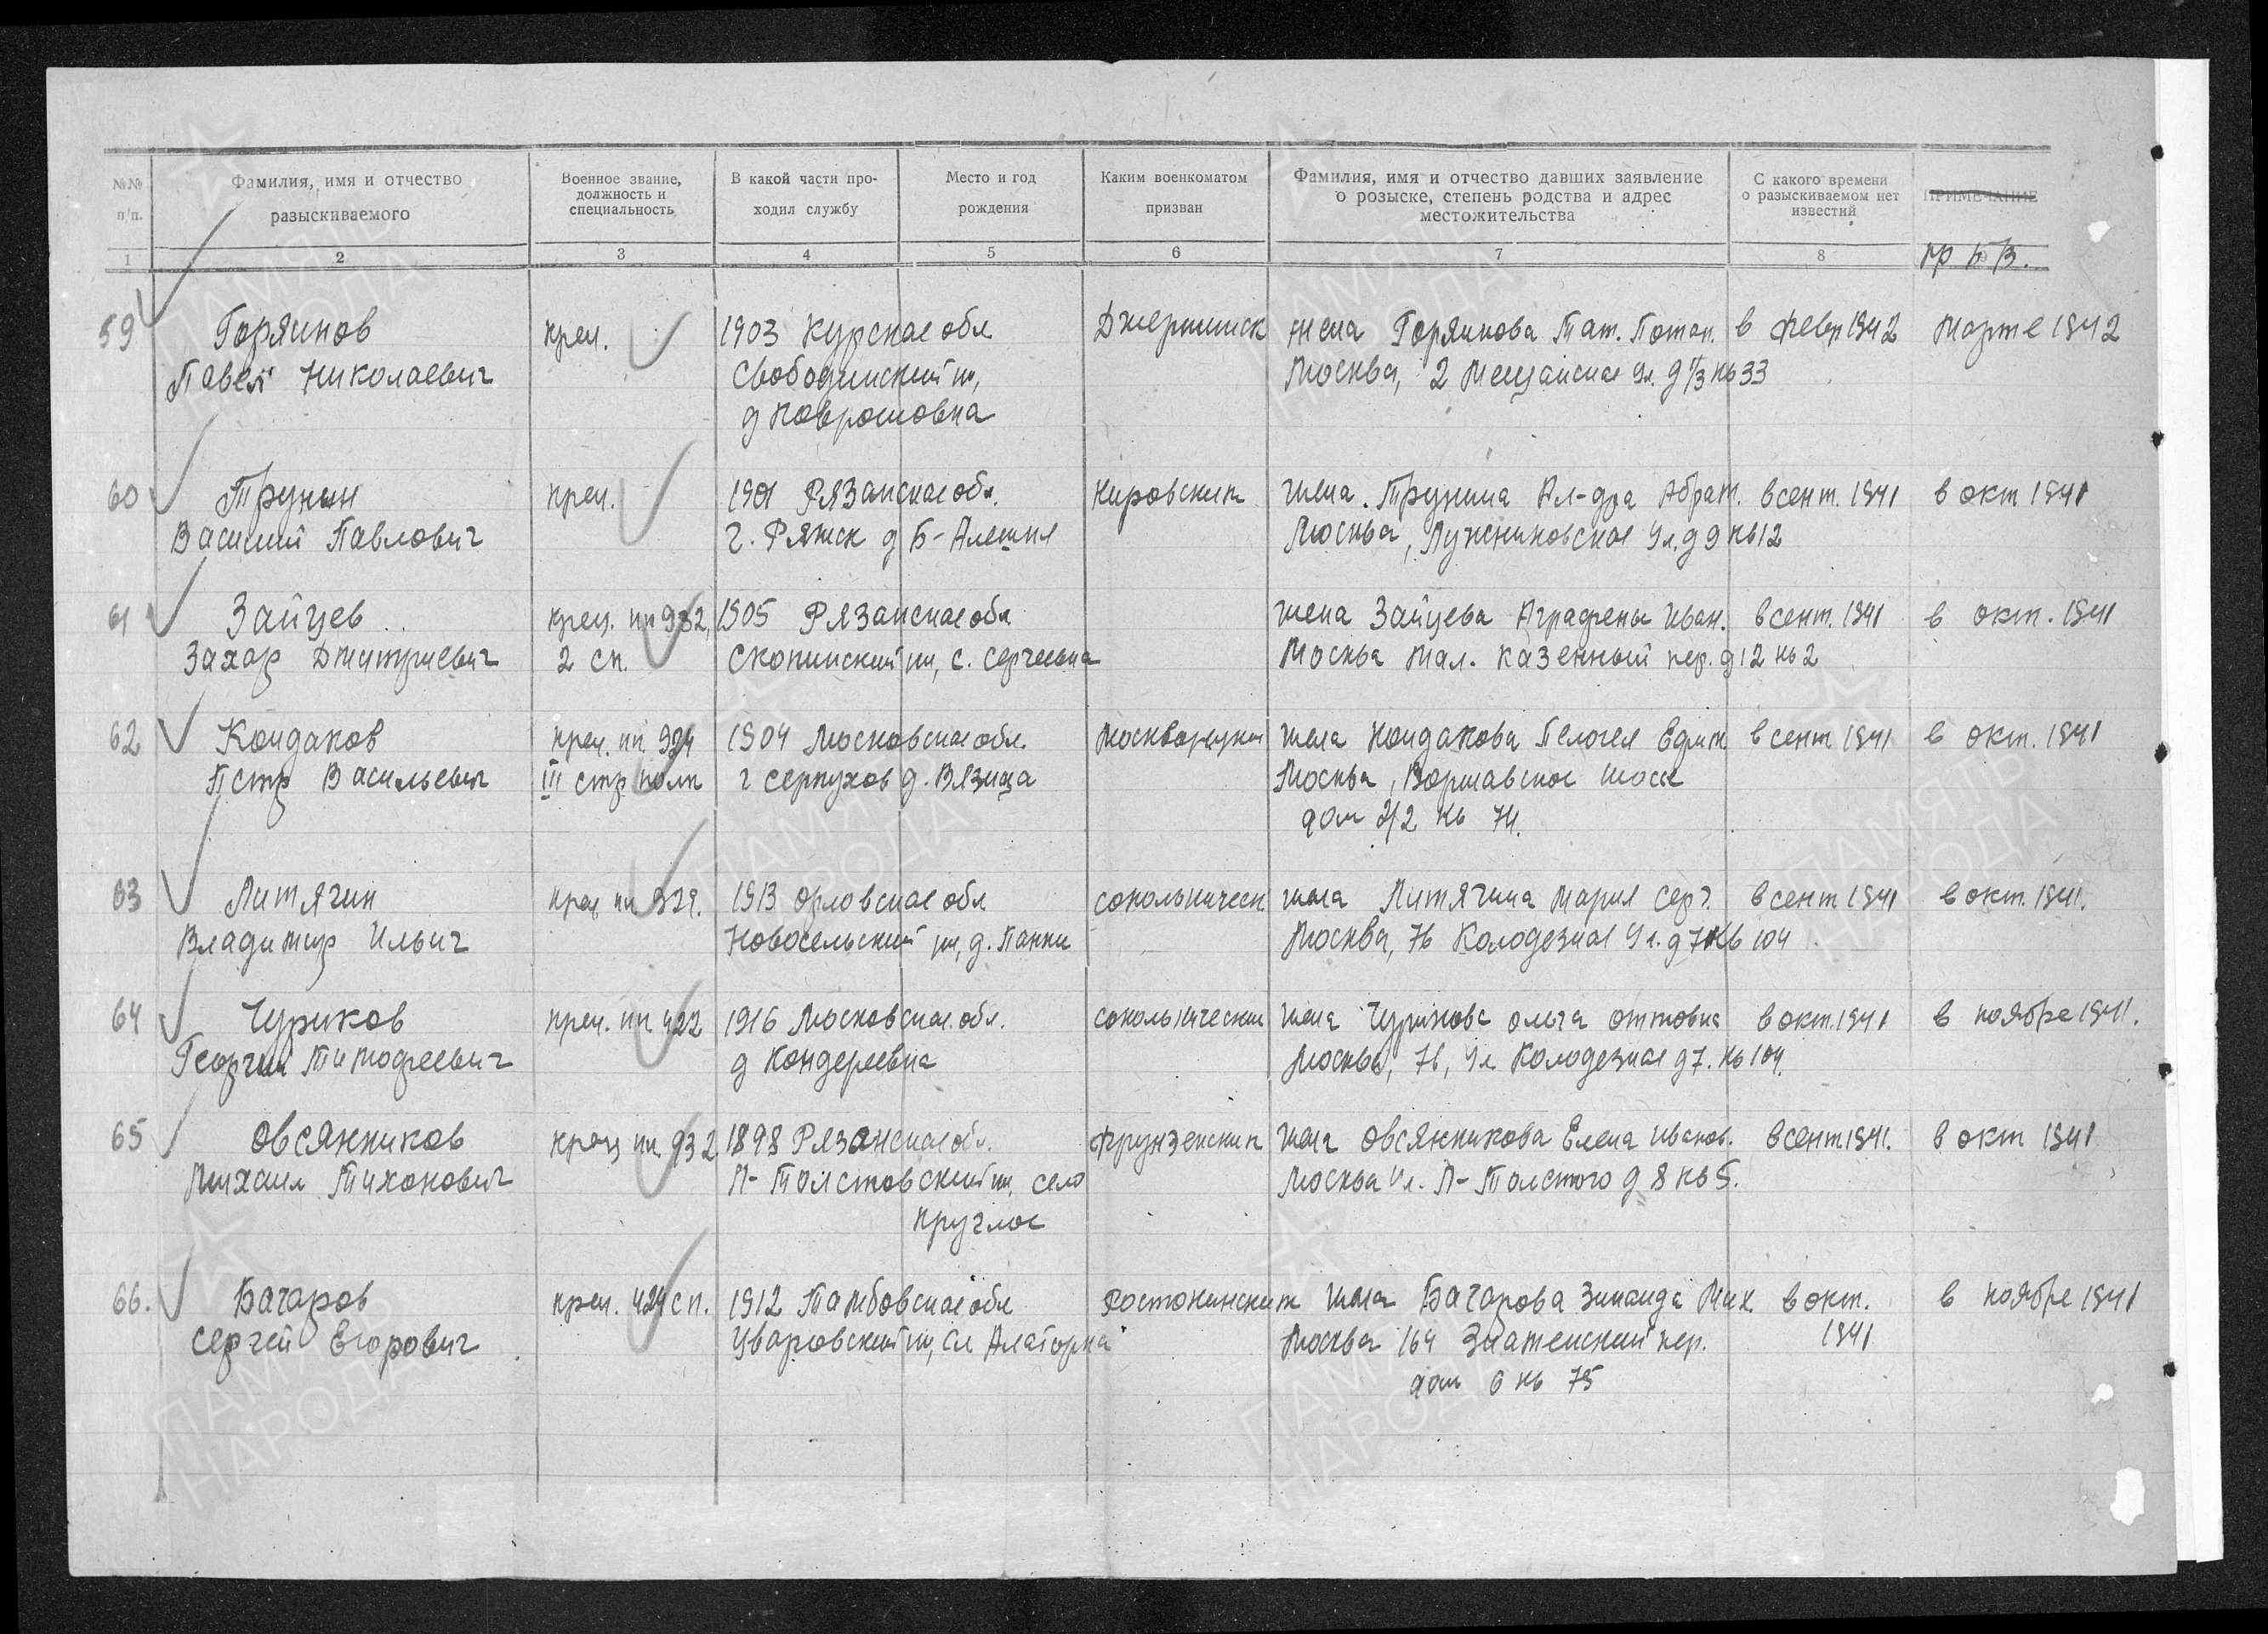 №№ п/п.
Фамилия, имя и отчество разыскиваемого
Военное звание, должность и специальность
В какой части проходил службу
Место и год рождения
Каким военкоматом призван
Фамилия, имя и отчество давших заявление о розыске, степень родства и адрес местожительства
С какого времени о разыскиваемом нет известий
ПРИМЕЧАНИЕ
1 2 3 4 5 6 7 8 пр б/в.
59 Горяинов крец. 1903 Курская обл Дзержинск жена Горяинова Тат. Потап. в февр 1942 марте 1942
Павел Николаевич Свободинский рн, Москва, 2 Мещанская ул. д 1/3 кв 33
60 Трунин крец. 1901 Рязанская обл. Кировским жена Трунина Ал-дра Абрам. в сент. 1941 в окт 1941
Василий Павлович г. Ряжск д Б-Алешня Москва, Лужниковская ул. д 9 кв 12
61 Зайцев крец. пп 932, 1905 Рязанская обл жена Зайцева Аграфена Иван. в сент. 1941 в окт. 1941
Захар Дмитриевич 2 сп. Скопинский рн, с. Москва Мал. Казенный пер. д 12 кв 2
62 Кондаков крец. пп. 924 1904 Московская обл. Москворецки жена Кондакова Пелагея Ефим. в сент 1941 в окт. 1941
Петр Васильевич III стр полк г Серпухов д. Вязища Москва, Варшавское шоссе
дом кв 74.
63 Митягин крец пп 929. 1913 Орловская обл Сокольническ жена Митягина Мария Серг. в сент 1941 в окт. 1941.
Владимир Ильич Новосельский рн, д. Панки Москва, 76 Колодезная ул. д 7 кв 104
64 Чуриков крец. пп. 422 1916 Московская обл. Сокольнически жена Чурикова Ольга Оттовна в окт. 1941 в ноябре 1941.
Георгий Тимофеевич Москва, 76, ул Колодезная д 7. кв 104.
65 Овсянников крец пп 932 1898 Рязанская обл. Фрунзенским жена Овсянникова Елена Иванов. в сент 1941. в окт 1941
Михаил Тихонович Л-Толстовский рн, село Москва ул. Л-Толстого д 8 кв 5.
Круглое
66. Бачаров крец. 424 сп. 1912 Тамбовская обл Ростокинским жена Бачарова Зинаида Мих. в окт. в ноябре 1941
Сергей Егорович Уваровский рн, Москва 164 Знаменский пер. 1941
дом 6 кв 75
ПАМЯТЬ НАРОДА